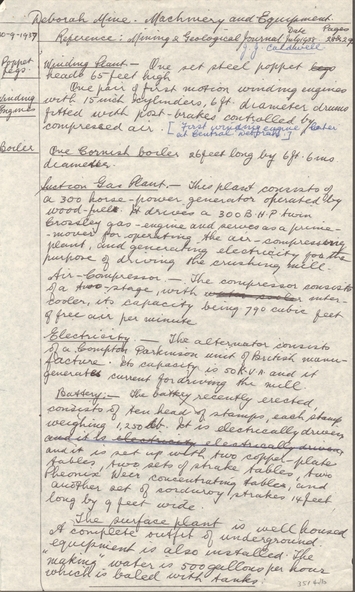 Deborah Mine. Machinery and Equipment.
10-9-1937 Date Pages
Reference: Mining & Geological Journal July 1938 28 & 29
J.J. Caldwell
Poppet Legs Winding Plant — One set steel poppet legs
heath 65 feet high
One pair of first motion winding engines
Winding Engines with 15 inch cylinders, 6ft. diameter drums
fitted with post-brakes controlled by
compressed air. [First winding engine later
at Central Nell Gwynne]
Boiler One Cornish boiler 26 feet long by 6ft. 6ins
diameter.
Suction Gas Plant. — This plant consists of
a 300 horse-power generator operated by
wood-fuel. It drives a 300 B.H.P twin
Crossley gas-engine and serves as a prime-
mover for operating the air-compressing
plant, and generating electricity for the
purpose of driving the crushing mill.
Air-Compressor — The compressor consists
of a two-stage, with water cooler inter-
cooler, its capacity being 790 cubic feet
of free air per minute
Electricity — The alternator consists
of a Compton Parkinson unit of British manu-
facture. Its capacity is 50 K.V.A and it
generates current for driving the mill
Battery: — The battery recently erected,
consists of ten head of stamps, each stamp
weighing 1,250 lb. It is electrically driven
and it is electrically electrically driven,
and it is set up with two copper-plate
tables, two sets of strake tables, two
Pheonix Weir concentrating tables, and
another set of corduroy strakes 14 feet
long by 9 feet wide.
The surface plant is well housed
A complete outfit of underground
equipment is also installed. The
"making" water is 500 gallons per hour
which is baled with tanks.